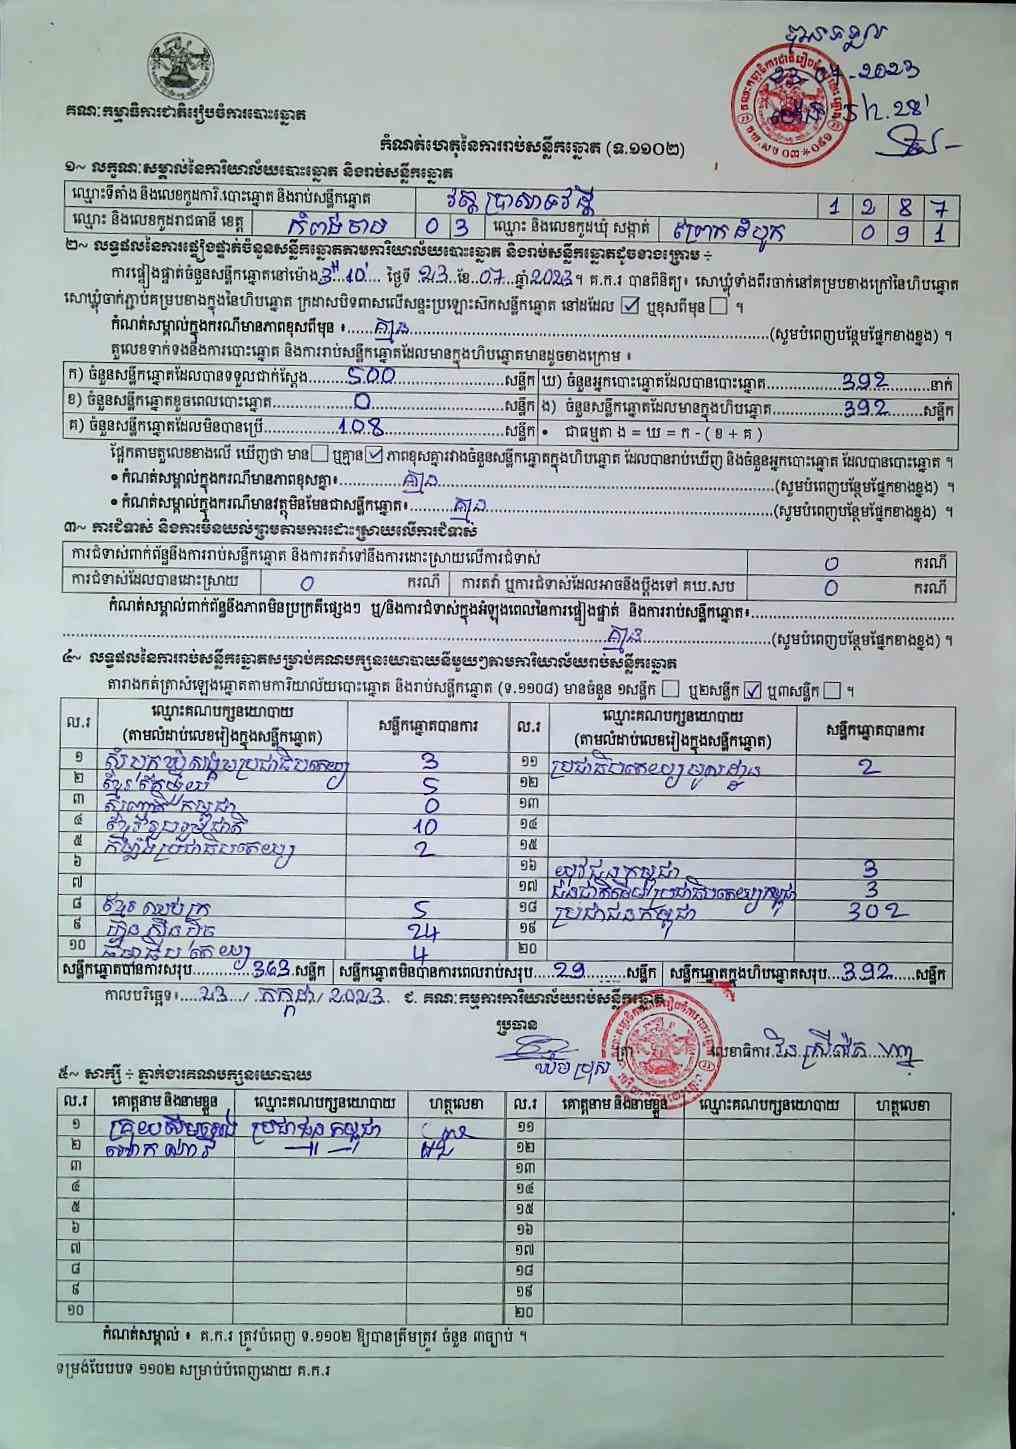 បានទទួល
23.07.2023
ម៉ោង 5h.28'
គណៈកម្មាធិការជាតិរៀបចំការបោះឆ្នោត
កំណត់ហេតុនៃការរាប់សន្លឹកឆ្នោត (ទ.១១០២)
១~ លក្ខណៈសម្គាល់នៃការិយាល័យបោះឆ្នោត និងរាប់សន្លឹកឆ្នោត
ឈ្មោះទីតាំង និងលេខកូដការិ.បោះឆ្នោត និងរាប់សន្លឹកឆ្នោត វត្តប្រាសាទវដ្តី 1 2 8 7
ឈ្មោះ និងលេខកូដរាជធានី ខេត្ត កំពង់ចាម 0 3 ឈ្មោះ និងលេខកូដឃុំ សង្កាត់ ព្រែកដំបូក 0 9 1
២~ លទ្ធផលនៃការផ្ទៀងផ្ទាត់ចំនួនសន្លឹកឆ្នោតតាមការិយាល័យបោះឆ្នោត និងរាប់សន្លឹកឆ្នោតដូចខាងក្រោម ÷
ការផ្ទៀងផ្ទាត់ចំនួនសន្លឹកឆ្នោតនៅម៉ោង 3h 10' ថ្ងៃទី 23 ខែ 07 ឆ្នាំ 2023។ គ.ក.រ បានពិនិត្យ៖ សោឃ្លុំទាំងពីរចាក់នៅគម្របខាងក្រៅនៃហិបឆ្នោត
សោឃ្លុំចាក់ភ្ជាប់គម្របខាងក្នុងនៃហិបឆ្នោត ក្រដាសបិទពាសលើសន្ទះប្រឡោះសិកសន្លឹកឆ្នោត នៅដដែល ☑ ឬខុសពីមុន ☐ ។
កំណត់សម្គាល់ក្នុងករណីមានភាពខុសពីមុន ៖ គ្មាន (សូមបំពេញបន្ថែមផ្នែកខាងខ្នង) ។
តួលេខទាក់ទងនឹងការបោះឆ្នោត និងការរាប់សន្លឹកឆ្នោតដែលមានក្នុងហិបឆ្នោតមានដូចខាងក្រោម ៖
ក) ចំនួនសន្លឹកឆ្នោតដែលបានទទួលជាក់ស្តែង 500 សន្លឹក ឃ) ចំនួនអ្នកបោះឆ្នោតដែលបានបោះឆ្នោត 392 នាក់
ខ) ចំនួនសន្លឹកឆ្នោតខូចពេលបោះឆ្នោត 0 សន្លឹក ង) ចំនួនសន្លឹកឆ្នោតដែលមានក្នុងហិបឆ្នោត 392 សន្លឹក
គ) ចំនួនសន្លឹកឆ្នោតដែលមិនបានប្រើ 108 សន្លឹក • ជាធម្មតា ង = ឃ = ក - ( ខ + គ )
ផ្អែកតាមតួលេខខាងលើ ឃើញថា មាន ☐ ឬគ្មាន ☑ ភាពខុសគ្នារវាងចំនួនសន្លឹកឆ្នោតក្នុងហិបឆ្នោត ដែលបានរាប់ឃើញ និងចំនួនអ្នកបោះឆ្នោត ដែលបានបោះឆ្នោត ។
• កំណត់សម្គាល់ក្នុងករណីមានភាពខុសគ្នា៖ គ្មាន (សូមបំពេញបន្ថែមផ្នែកខាងខ្នង) ។
• កំណត់សម្គាល់ក្នុងករណីមានវត្ថុមិនមែនជាសន្លឹកឆ្នោត៖ គ្មាន (សូមបំពេញបន្ថែមផ្នែកខាងខ្នង) ។
៣~ ការជំទាស់ និងការមិនយល់ព្រមតាមការដោះស្រាយលើការជំទាស់
ការជំទាស់ពាក់ព័ន្ធនឹងការរាប់សន្លឹកឆ្នោត និងការតវ៉ាទៅនឹងការដោះស្រាយលើការជំទាស់ 0 ករណី
ការជំទាស់ដែលបានដោះស្រាយ 0 ករណី ការតវ៉ា ឬការជំទាស់ដែលអាចនឹងប្តឹងទៅ គឃ.សប 0 ករណី
កំណត់សម្គាល់ពាក់ព័ន្ធនឹងភាពមិនប្រក្រតីផ្សេងៗ ឬ/និងការជំទាស់ក្នុងអំឡុងពេលនៃការផ្ទៀងផ្ទាត់ និងការរាប់សន្លឹកឆ្នោត៖
គ្មាន (សូមបំពេញបន្ថែមផ្នែកខាងខ្នង) ។
៤~ លទ្ធផលនៃការរាប់សន្លឹកឆ្នោតសម្រាប់គណបក្សនយោបាយនីមួយៗតាមការិយាល័យរាប់សន្លឹកឆ្នោត
តារាងកត់ត្រាសំឡេងឆ្នោតតាមការិយាល័យបោះឆ្នោត និងរាប់សន្លឹកឆ្នោត (ទ.១១០៨) មានចំនួន ១សន្លឹក ☐ ឬ២សន្លឹក ☑ ឬ៣សន្លឹក ☐ ។
ល.រ ឈ្មោះគណបក្សនយោបាយ (តាមលំដាប់លេខរៀងក្នុងសន្លឹកឆ្នោត) សន្លឹកឆ្នោតបានការ ល.រ ឈ្មោះគណបក្សនយោបាយ (តាមលំដាប់លេខរៀងក្នុងសន្លឹកឆ្នោត) សន្លឹកឆ្នោតបានការ
១ សំបុកឃ្មុំសង្គមប្រជាធិបតេយ្យ 3 ១១ ប្រជាធិបតេយ្យមូលដ្ឋាន 2
២ ខ្មែរឥស្សរៈ 5 ១២
៣ សញ្ជាតិកម្ពុជា 0 ១៣
៤ ខ្មែររួបរួមជាតិ 10 ១៤
៥ កម្លាំងប្រជាធិបតេយ្យ 2 ១៥
៦ ១៦ យុវជនកម្ពុជា 3
៧ ១៧ ជនជាតិដើមប្រជាធិបតេយ្យកម្ពុជា 3
៨ ខ្មែរឈប់ក្រ 5 ១៨ ប្រជាជនកម្ពុជា 302
៩ ហ៊្វុនស៊ិនប៉ិច 24 ១៩
១០ ធម្មាធិបតេយ្យ 4 ២០
សន្លឹកឆ្នោតបានការសរុប 363 សន្លឹក សន្លឹកឆ្នោតមិនបានការពេលរាប់សរុប 29 សន្លឹក សន្លឹកឆ្នោតក្នុងហិបឆ្នោតសរុប 392 សន្លឹក
កាលបរិច្ឆេទ៖ 23 / កក្កដា / 2023 ជ. គណៈកម្មការការិយាល័យរាប់សន្លឹកឆ្នោត
ប្រធាន
ត្រា លេខាធិការ
៥~ សាក្សី ÷ ភ្នាក់ងារគណបក្សនយោបាយ
ល.រ គោត្តនាម និងនាមខ្លួន ឈ្មោះគណបក្សនយោបាយ ហត្ថលេខា ល.រ គោត្តនាម និងនាមខ្លួន ឈ្មោះគណបក្សនយោបាយ ហត្ថលេខា
១ ប្រជាជនកម្ពុជា ១១
២ —"— ១២
៣ ១៣
៤ ១៤
៥ ១៥
៦ ១៦
៧ ១៧
៨ ១៨
៩ ១៩
១០ ២០
កំណត់សម្គាល់ ៖ គ.ក.រ ត្រូវបំពេញ ទ.១១០២ ឱ្យបានត្រឹមត្រូវ ចំនួន ៣ច្បាប់ ។
ទម្រង់បែបបទ ១១០២ សម្រាប់បំពេញដោយ គ.ក.រ